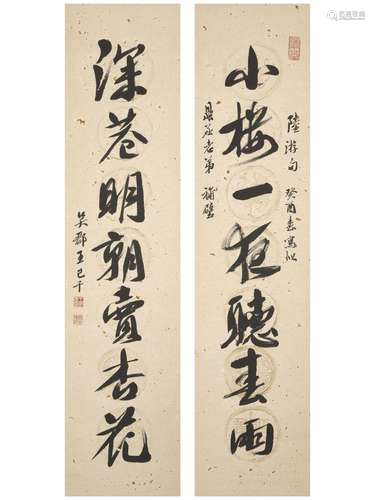 小樓一夜聽春雨
陸游句 癸酉春寫似
鼎丞老弟 補壁
深巷明朝賣杏花
吳郡王己千